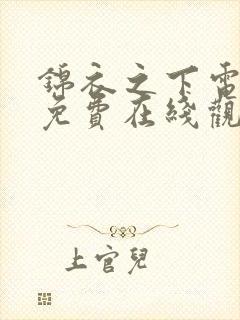 錦衣之下電
免費在綫觀
上官兒